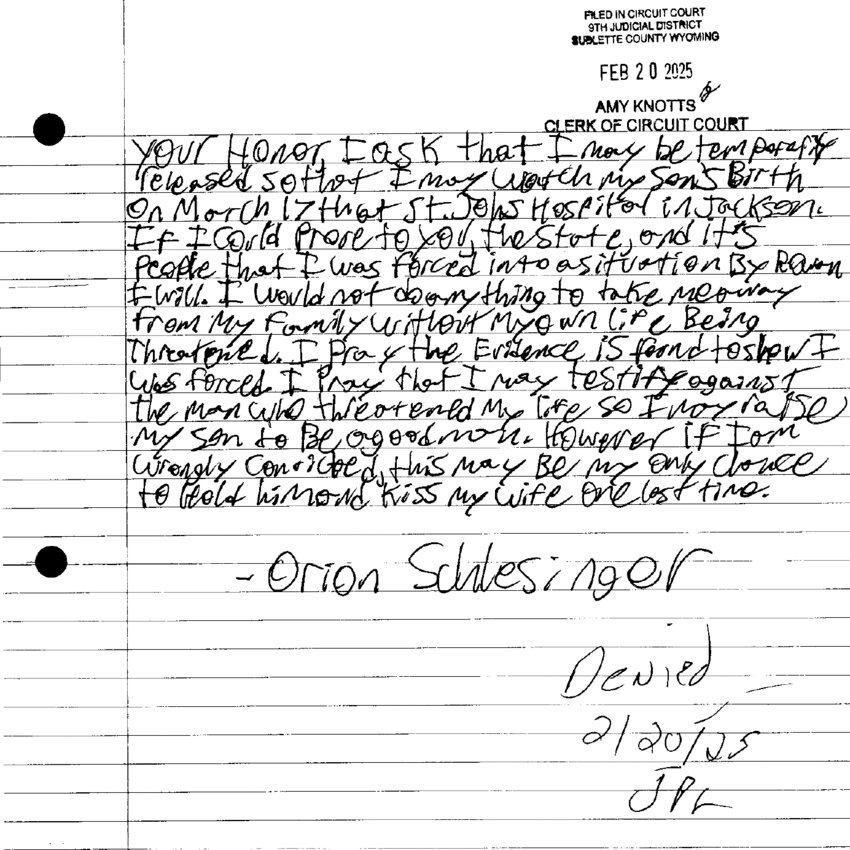 FILED IN CIRCUIT COURT
9TH JUDICIAL DISTRICT
SUBLETTE COUNTY WYOMING
FEB 20 2025
AMY KNOTTS
CLERK OF CIRCUIT COURT
Your Honor, I ask that I may be temporarily
released so that I may watch my son's Birth
On March 17 that St. Johs Hospital in Jackson.
If I Could Prove to you, the State, and it's
People that I was forced into a situation By
I will. I would not do anything to take me away
from my family without my own life Being
Threatened. I Pray the Evidence is found to show I
was forced. I Pray that I may testify against
the man who threatened my life so I may raise
my son to Be a good man. However if I am
wrongly Convicted, this may Be my only chance
to Hold him and kiss my wife one last time.
- Orion Schlesinger
Denied
2/20/25
JPL